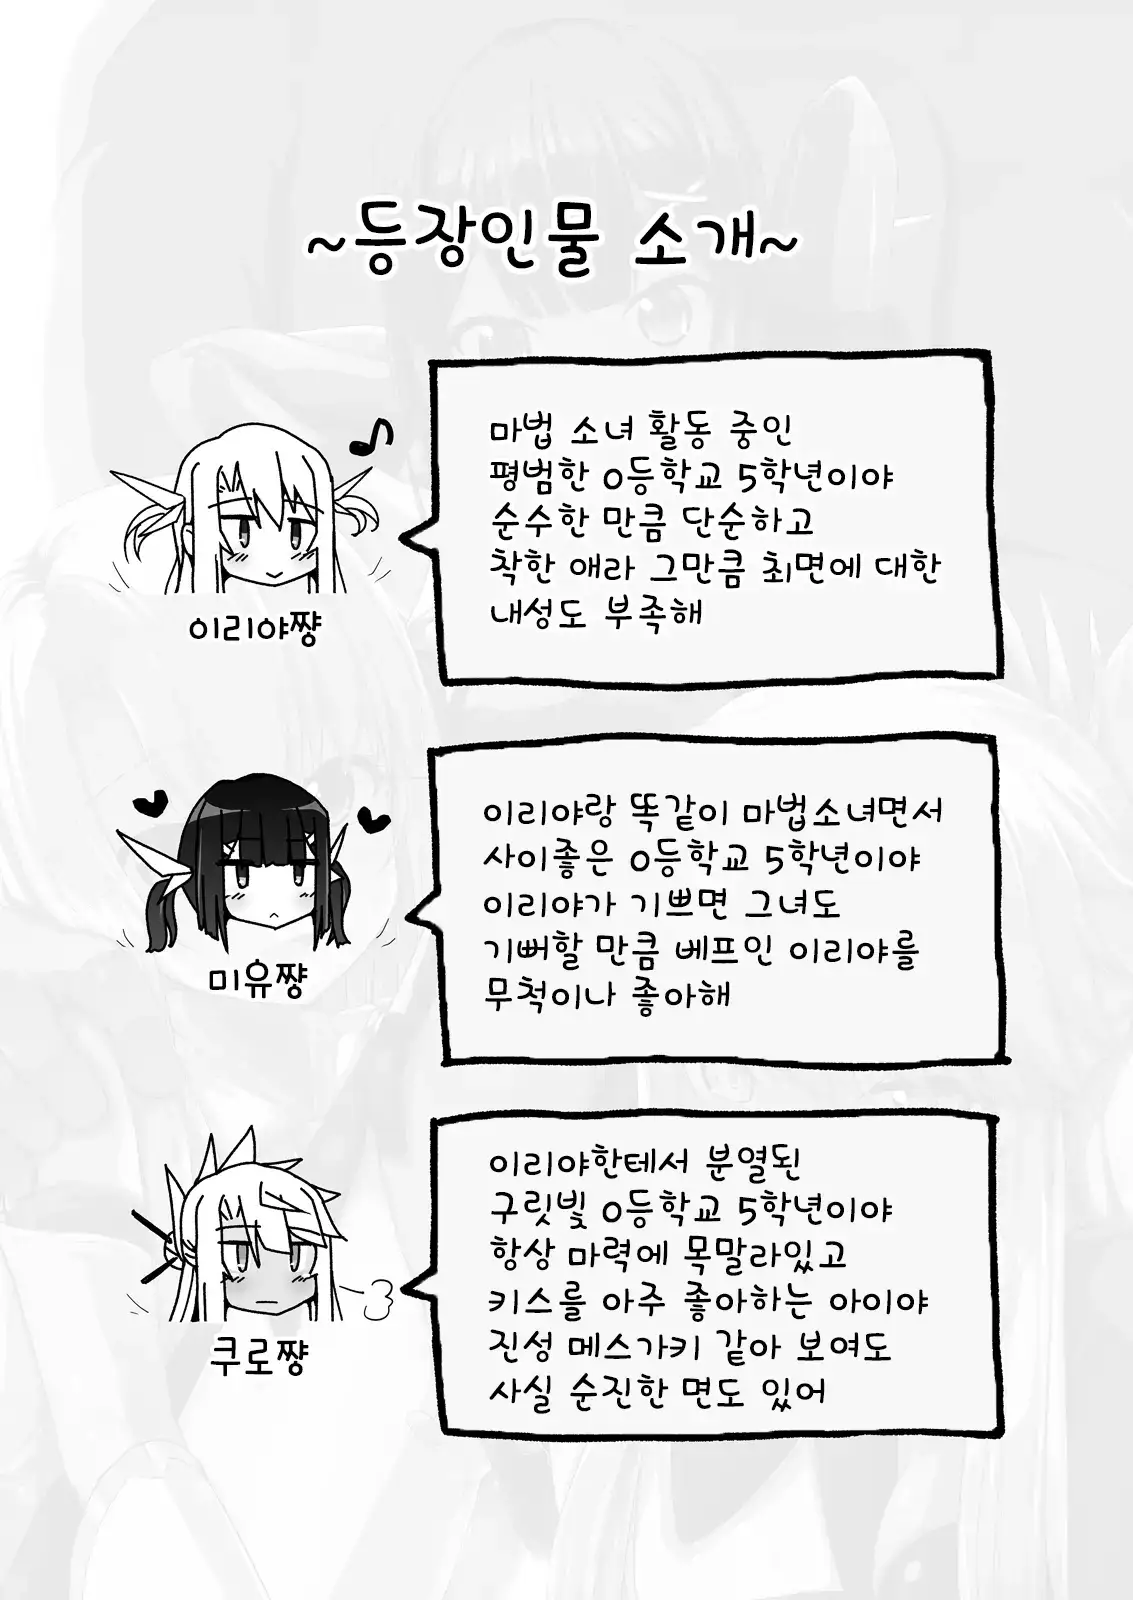 ~등장인물 소개~
마법 소녀 활동 중인
평범한 0등학교 5학년이야
순수한 만큼 단순하고
착한 애라 그만큼 최면에 대한
내성도 부족해
이리야쨩
이리야랑 똑같이 마법소녀면서
사이좋은 0등학교 5학년이야
이리야가 기쁘면 그녀도
기뻐할 만큼 베프인 이리야를
무척이나 좋아해
미유쨩
이리야한테서 분열된
구릿빛 0등학교 5학년이야
항상 마력에 목말라있고
키스를 아주 좋아하는 아이야
진성 메스가키 같아 보여도
사실 순진한 면도 있어
쿠로쨩